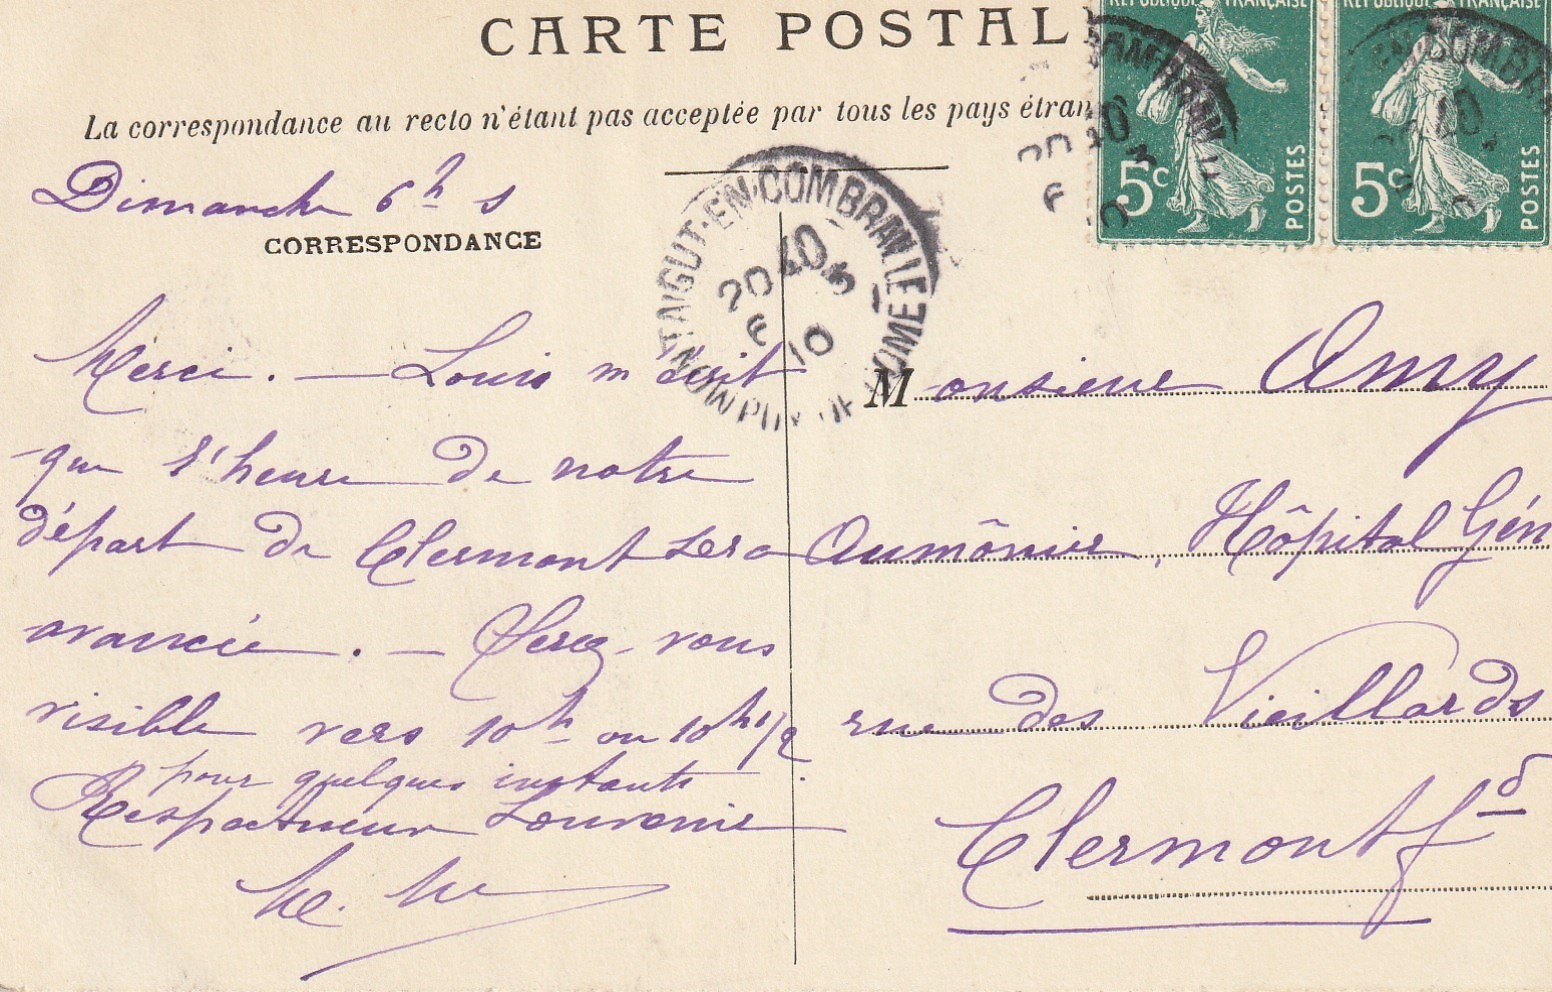 CARTE POSTAL
La correspondance au recto n'étant pas acceptée par tous les pays étran
RÉPUBLIQUE FRANÇAISE
5c
POSTES
RÉPUBLIQUE FRANÇAISE
5c
POSTES
MONTAIGUT-EN-COMBRAILLE
PUY-DE-DOME
20
6 10
Dimanche 6h s
CORRESPONDANCE
Merci. — Louis m'écrit
que l'heure de notre
départ de Clermont sera
avancée. — Serez-vous
visible vers 10h ou 10h 1/2
pour quelques instants
Respectueux Souvenir
Monsieur Amy
Aumônier, Hôpital Gén
rue des Vieillards
Clermont fd